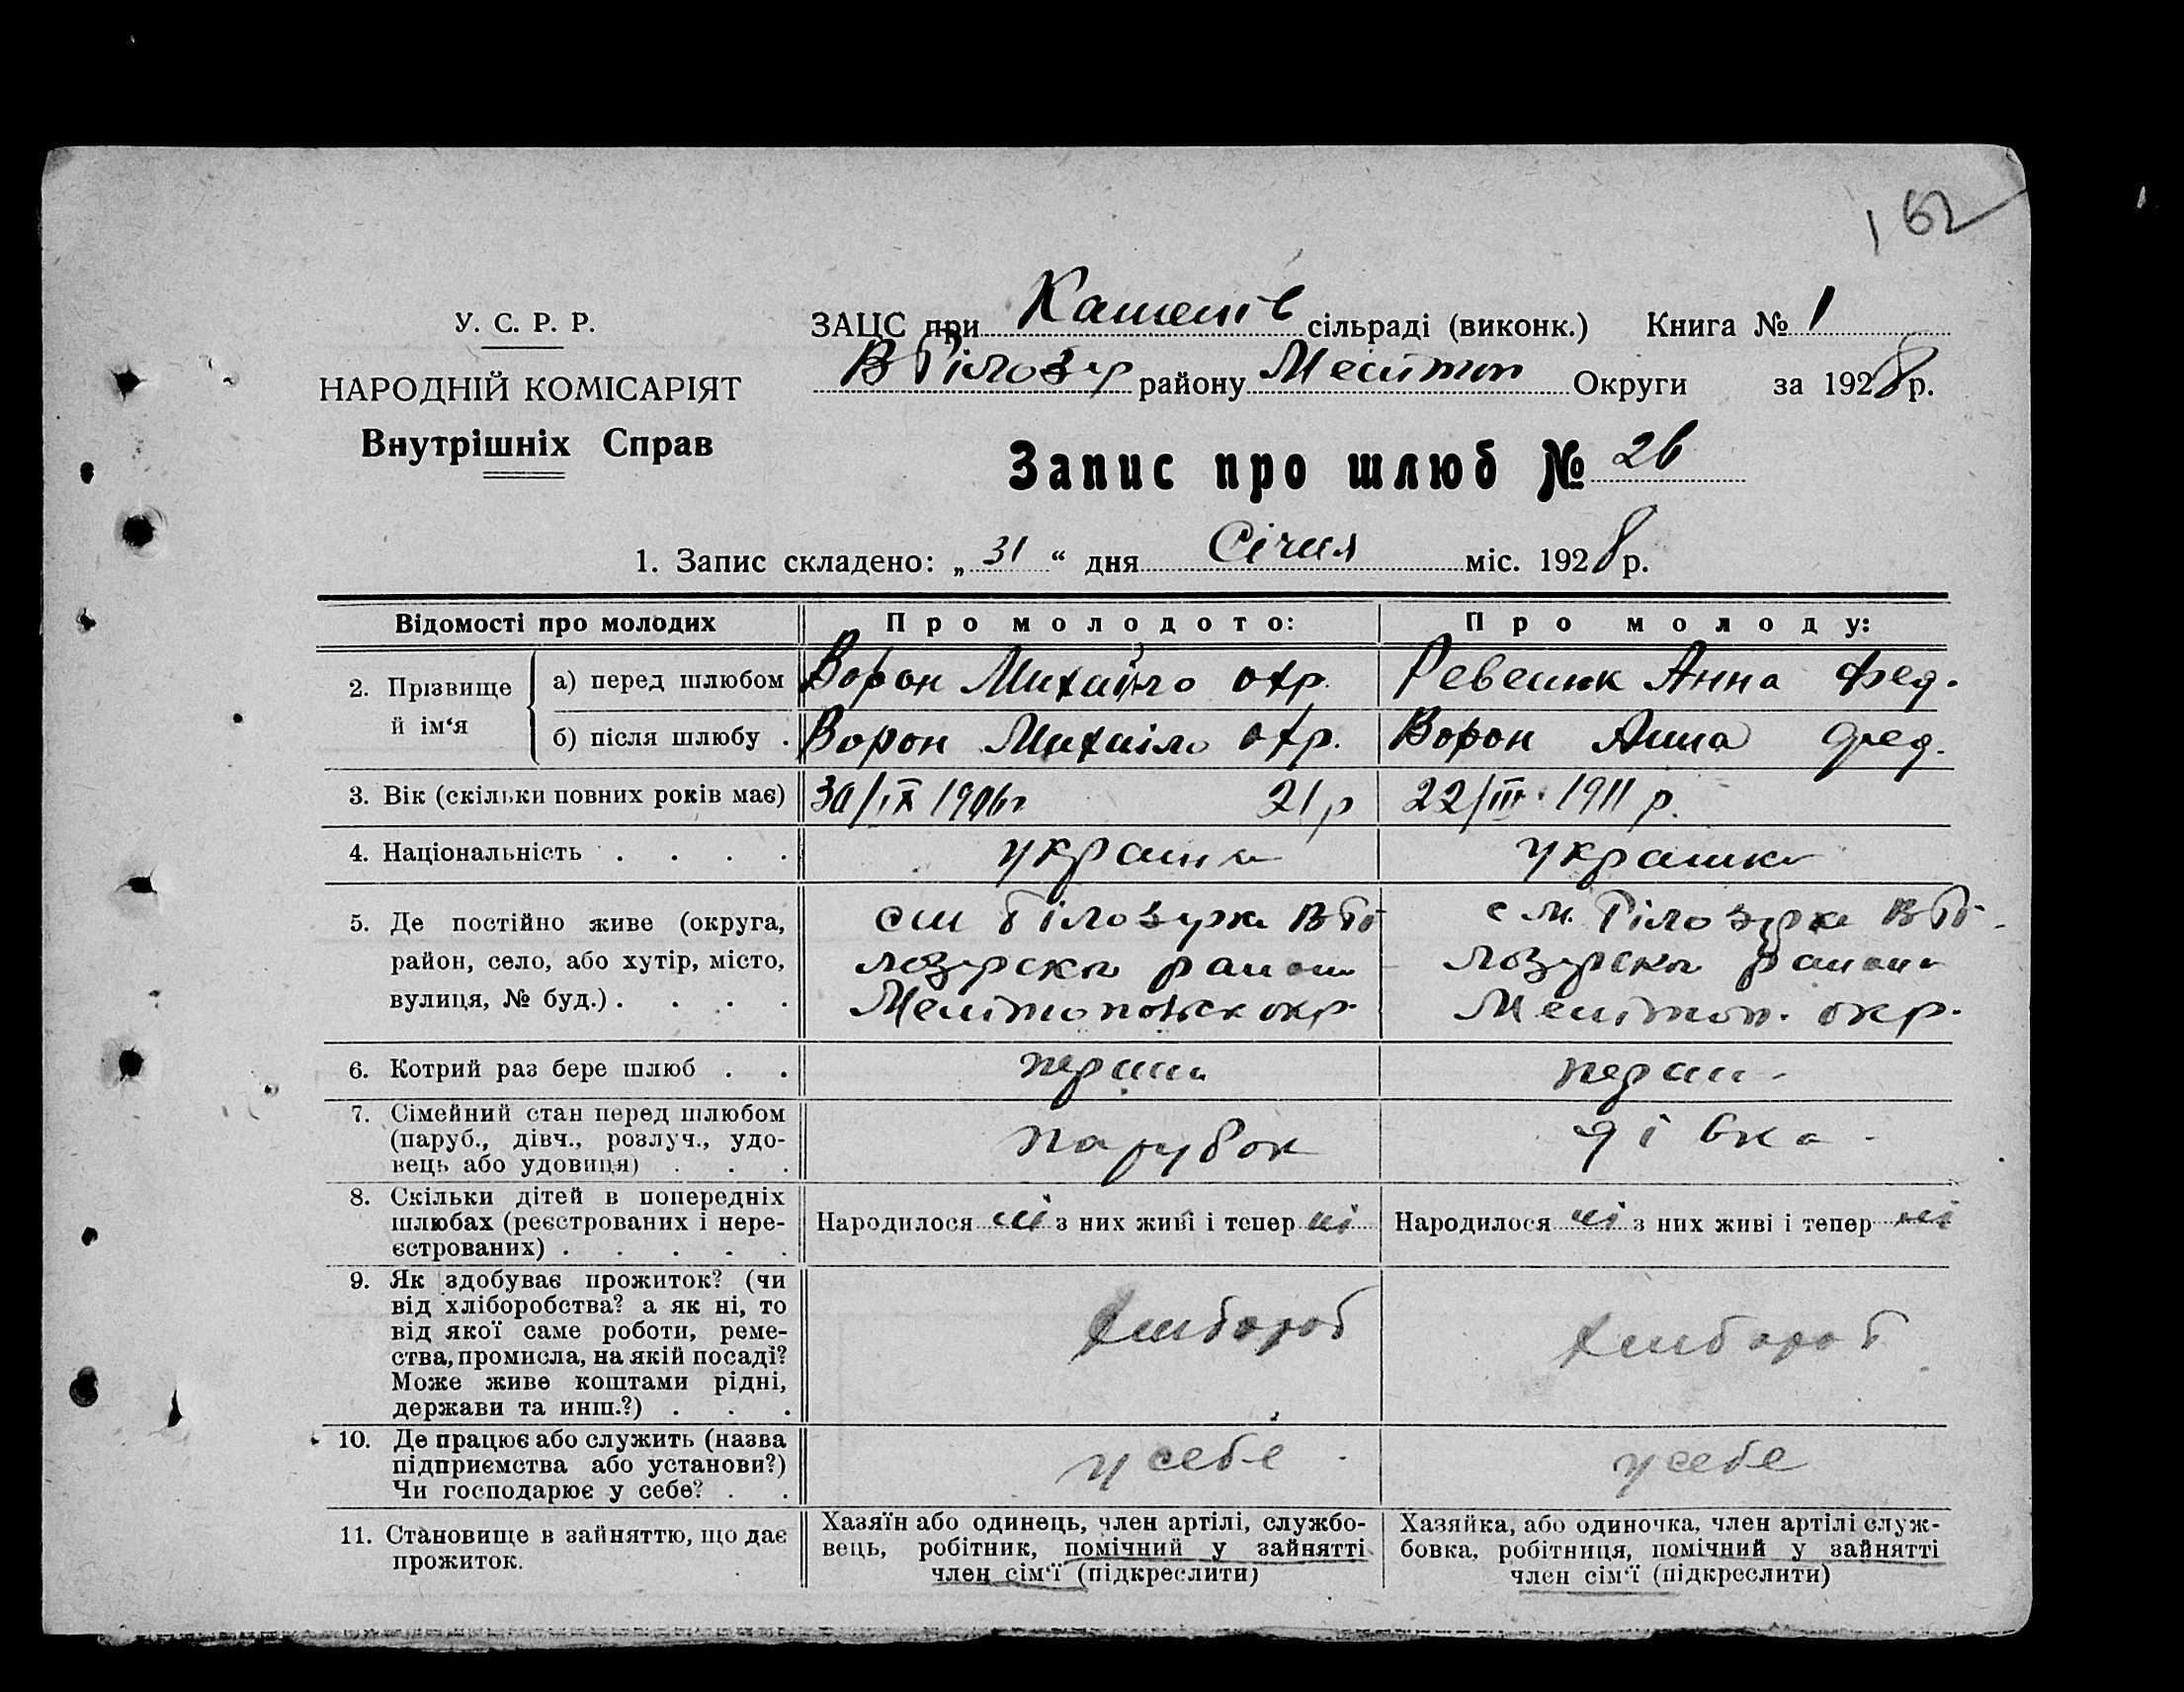 162
У. С. Р. Р.
НАРОДНІЙ КОМІСАРІЯТ
Внутрішніх Справ
ЗАЦС при Камянів сільраді (виконк.) Книга № 1
В Білозер району Меліт Округи за 1928 р.
Запис про шлюб № 26
1. Запис складено: „ 31 “ дня Січня міс. 1928 р.
Відомості про молодих Про молодого: Про молоду:
2. Прізвище й ім‘я
а) перед шлюбом Ворон Михайло охр. Ревенк Анна Фед.
б) після шлюбу . Ворон Михаіло охр. Ворон Анна Фед.
3. Вік (скільки повних років має) 30/IX 1906 г 21 р 22/III 1911 р.
4. Національність . . . . україн українка
5. Де постійно живе (округа, район, село, або хутір, місто, вулиця, № буд.) . . . .
см Білозерка В Бі
лозерско район
окр.
с м. Білозерка В Бі-
лозерско район
окр.
6. Котрий раз бере шлюб . . перши перши
7. Сімейний стан перед шлюбом
(паруб., дівч., розлуч., удо-
вець або удовиця) . . . парубок дівка
8. Скільки дітей в попередніх
шлюбах (реєстрованих і нере-
єстрованих) . . . . .
Народилося ні з них живі і тепер ні Народилося ні з них живі і тепер ні
9. Як здобуває прожиток? (чи
від хліборобства? а як ні, то
від якої саме роботи, реме-
ства, промисла, на якій посаді?
Може живе коштами рідні,
держави та инш.?) . . .
хлибороб хлибороб
10. Де працює або служить (назва
підприємства або установи?)
Чи господарює у себе? . .
у себе у себе
11. Становище в зайняттю, що дає
прожиток.
Хазяїн або одинець, член артілі, службо-
вець, робітник, помічний у зайнятті
член сім‘ї (підкреслити)
Хазяйка, або одиночка, член артілі служ-
бовка, робітниця, помічний у зайнятті
член сім‘ї (підкреслити)